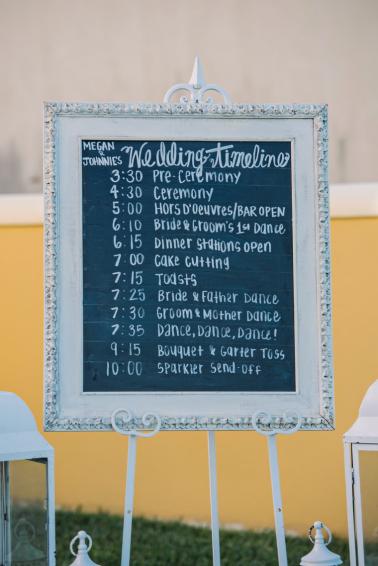 MEGAN & JOHNNIE'S Wedding Timeline
3:30 Pre-Ceremony
4:30 Ceremony
5:00 Hors D'oeuvres/BAR OPEN
6:10 Bride & Groom's 1st Dance
6:15 Dinner Stations open
7:00 Cake Cutting
7:15 Toasts
7:25 Bride & Father Dance
7:30 Groom & Mother Dance
7:35 Dance, Dance, Dance!
9:15 Bouquet & Garter Toss
10:00 Sparkler Send-off